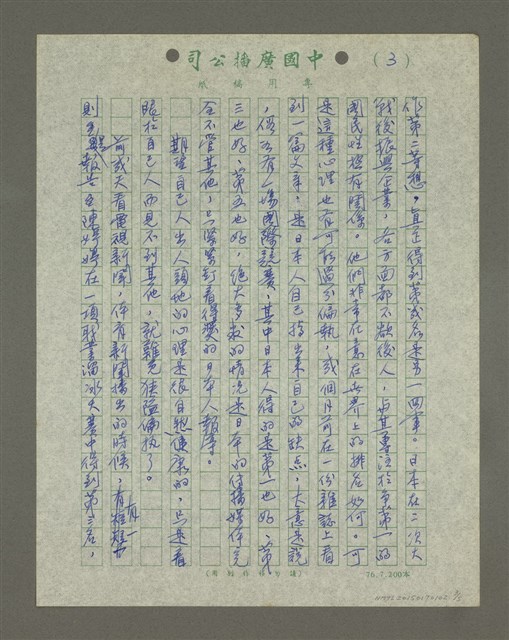 (3)
司公播廣國中
紙稿用專
作第二等想，真正得到第幾名是另一回事。日本在二次大
戰後振興企業，各方面都不敵後人，與其專注於爭第一的
國民性極有關係。他們非常在意在世界上的排名如何。可
是這種心理也有可能過分偏執，幾個月前在一份雜誌上看
到一篇文章，是日本人自己指出來自己的缺点，大意是說
，假如有一場國際競賽，其中日本人得的是第一也好、第
三也好、第五也好，絕大多數的情況是日本的傳播媒体完
全不管其他，只緊緊釘着得獎的日本人報導。
期望自己人出人頭地的心理是很自然健康的，只是看
眼於自己人而見不到其他，就難免狹隘偏執了。
前幾天看電視新聞，体育新聞播出的時候，有一
則報告至陳婷婷在一項職業溜冰大賽中得到第三名，
76.7.200本